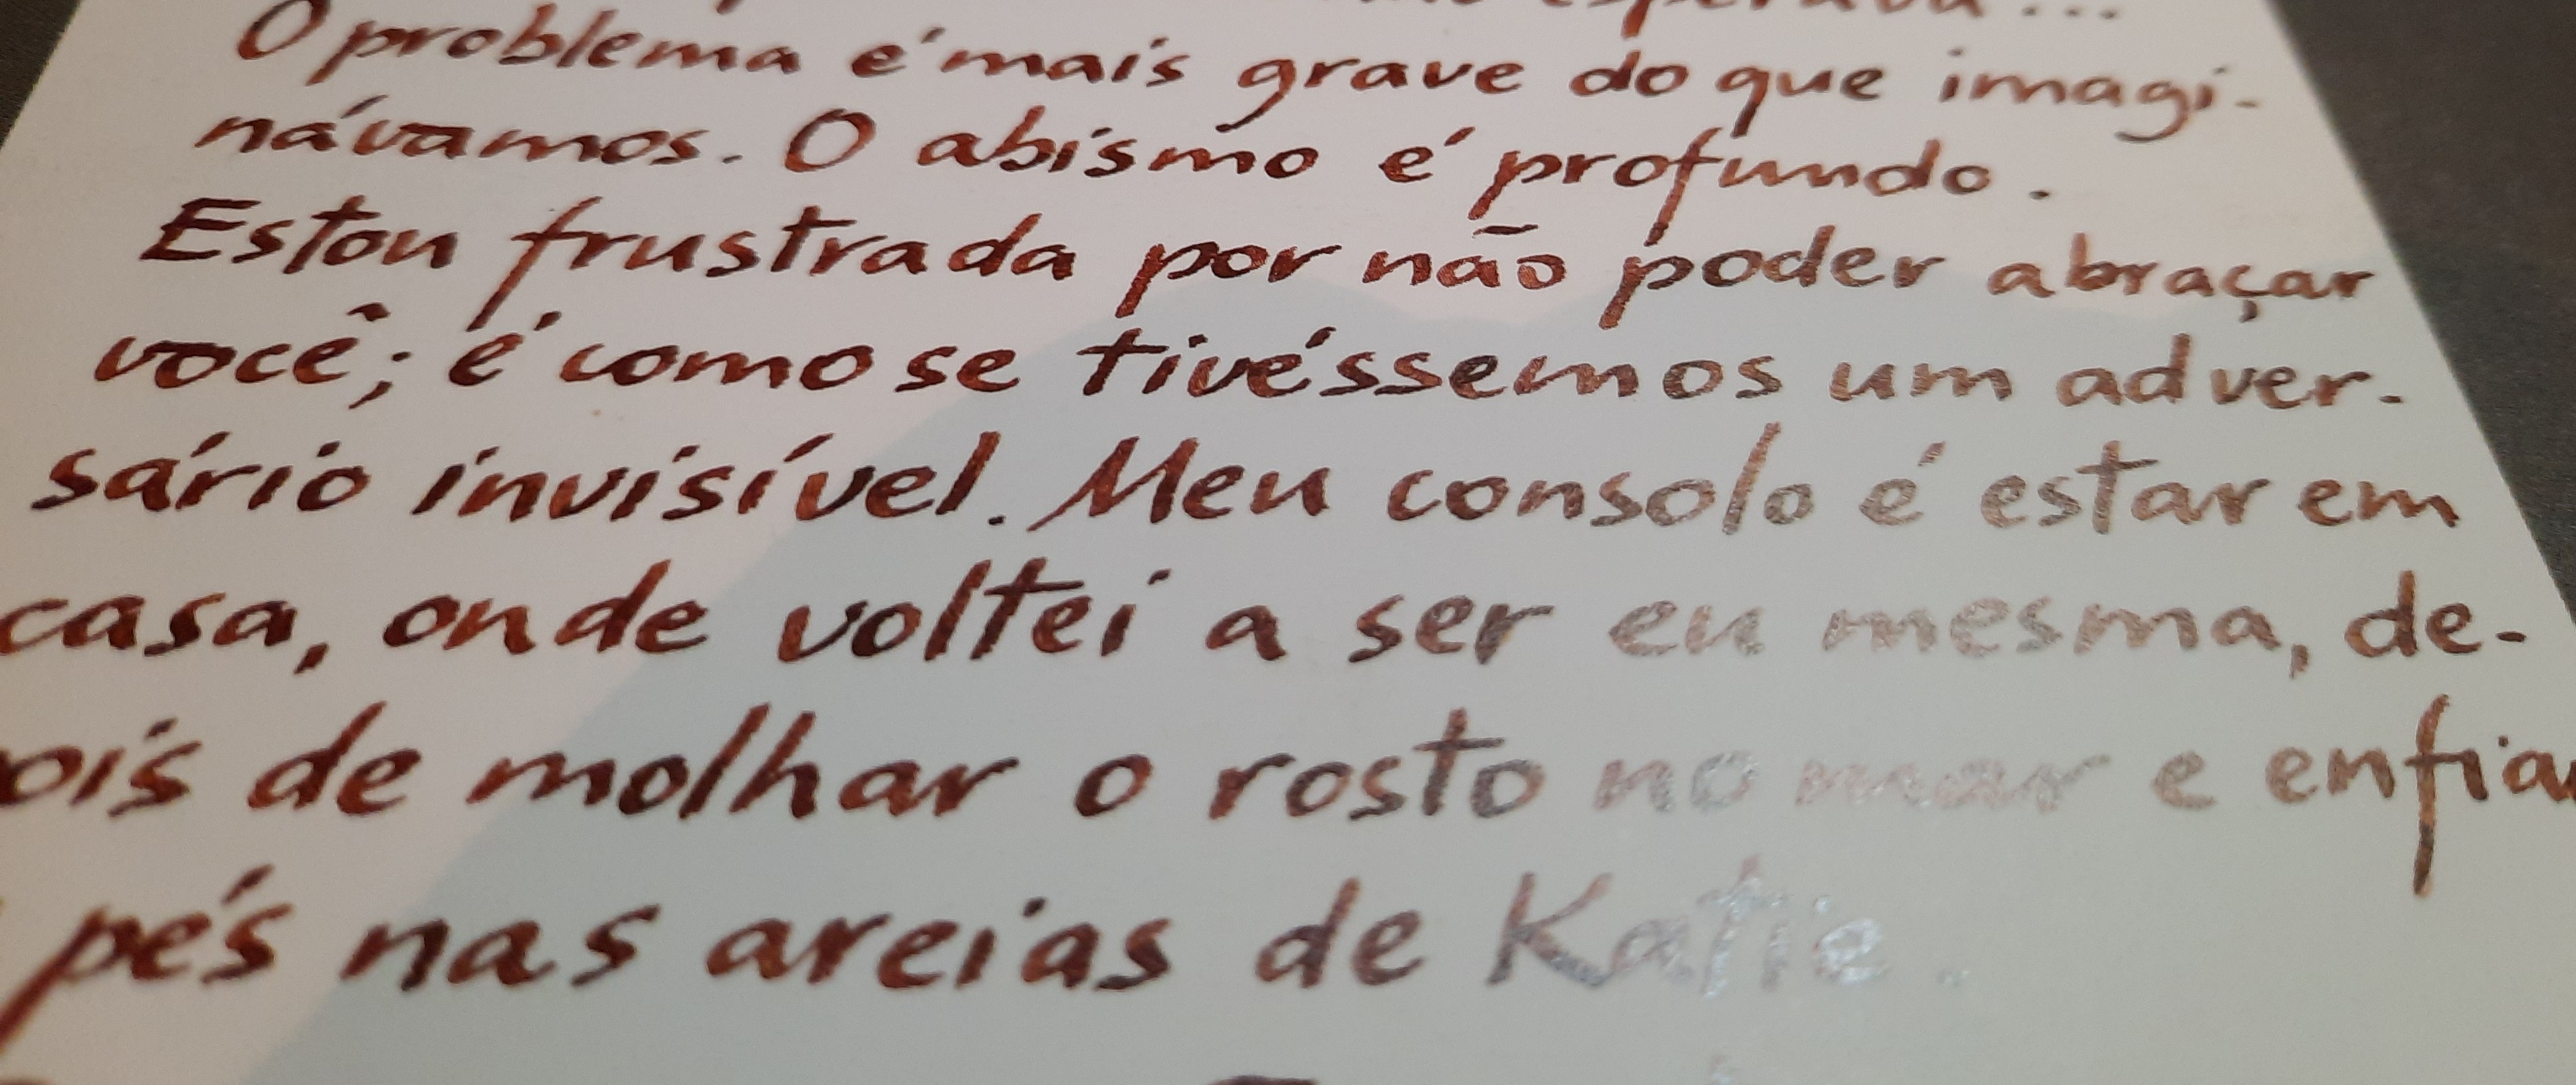 esperava...
O problema é mais grave do que imagi-
návamos. O abismo é profundo.
Estou frustrada por não poder abraçar
você; é como se tivéssemos um adver-
sário invisível. Meu consolo é estar em
casa, onde voltei a ser eu mesma, de-
pois de molhar o rosto no mar e enfiar
pés nas areias de Katie.